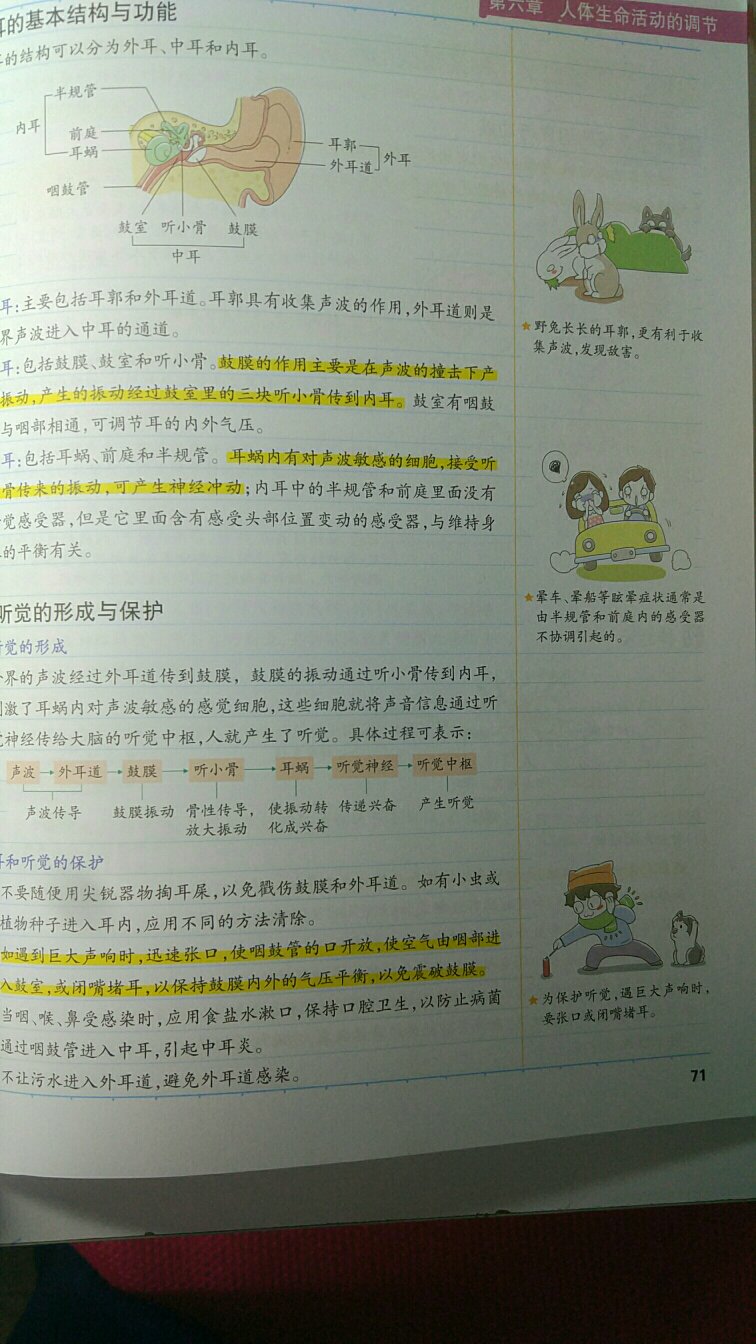 第六章 人体生命活动的调节
耳的基本结构与功能
的结构可以分为外耳、中耳和内耳。
半规管
内耳
前庭
耳蜗
耳郭
外耳道
外耳
咽鼓管
鼓室 听小骨 鼓膜
中耳
耳:主要包括耳郭和外耳道。耳郭具有收集声波的作用,外耳道则是
界声波进入中耳的通道。
耳:包括鼓膜、鼓室和听小骨。鼓膜的作用主要是在声波的撞击下产
振动,产生的振动经过鼓室里的三块听小骨传到内耳。鼓室有咽鼓
与咽部相通,可调节耳的内外气压。
耳:包括耳蜗、前庭和半规管。耳蜗内有对声波敏感的细胞,接受听
骨传来的振动,可产生神经冲动;内耳中的半规管和前庭里面没有
觉感受器,但是它里面含有感受头部位置变动的感受器,与维持身
的平衡有关。
★野兔长长的耳郭,更有利于收
集声波,发现敌害。
★晕车、晕船等眩晕症状通常是
由半规管和前庭内的感受器
不协调引起的。
听觉的形成与保护
听觉的形成
界的声波经过外耳道传到鼓膜,鼓膜的振动通过听小骨传到内耳,
刺激了耳蜗内对声波敏感的感觉细胞,这些细胞就将声音信息通过听
觉神经传给大脑的听觉中枢,人就产生了听觉。具体过程可表示:
声波→外耳道→鼓膜→听小骨→耳蜗→听觉神经→听觉中枢
声波传导 鼓膜振动 骨性传导, 使振动转 传递兴奋 产生听觉
放大振动 化成兴奋
耳和听觉的保护
不要随便用尖锐器物掏耳屎,以免戳伤鼓膜和外耳道。如有小虫或
植物种子进入耳内,应用不同的方法清除。
如遇到巨大声响时,迅速张口,使咽鼓管的口开放,使空气由咽部进
入鼓室,或闭嘴堵耳,以保持鼓膜内外的气压平衡,以免震破鼓膜。
当咽、喉、鼻受感染时,应用食盐水漱口,保持口腔卫生,以防止病菌
通过咽鼓管进入中耳,引起中耳炎。
不让污水进入外耳道,避免外耳道感染。
★为保护听觉,遇巨大声响时,
要张口或闭嘴堵耳。
71